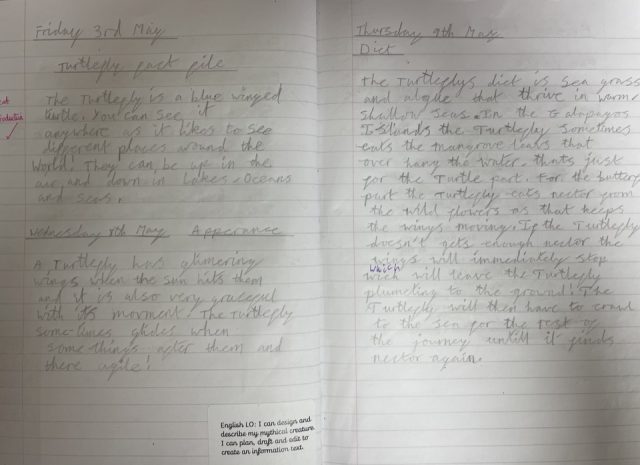 Friday 3rd May
Turtlefly fact file
The Turtlefly is a blue winged
turtle. You can see it
anywhere as it likes to see
different places around the
world. They can be up in the
air and down in Lakes, Oceans
and seas.
Wednesday 8th May Apperance
A Turtlefly has glimering
wings when the sun hits them
and it is also very gracefull
with its movment. The Turtlefly
some times glides when
some things after them and
there agile!
English LO: I can design and
describe my mythical creature.
I can plan, draft and edit to
create an information text.
Thursday 9th May
Diet
The Turtleflys diet is sea grass
and algue that thrive in warm
shallow seas. In the Galapagos
Islands the Turtlefly sometimes
eats the mangrove leavs that
over hang the water. thats just
for the Turtle part. For the butterfly
part the Turtlefly eats nector from
the wild flowers as that keeps
the wings moving. If the Turtlefly
doesn't gets enough nector the
wings will immediately stop
which
wich will leave the Turtlefly
plumeting to the ground! The
Turtlefly will then have to crawl
to the sea for the rest of
the journey untill it finds
nector again.